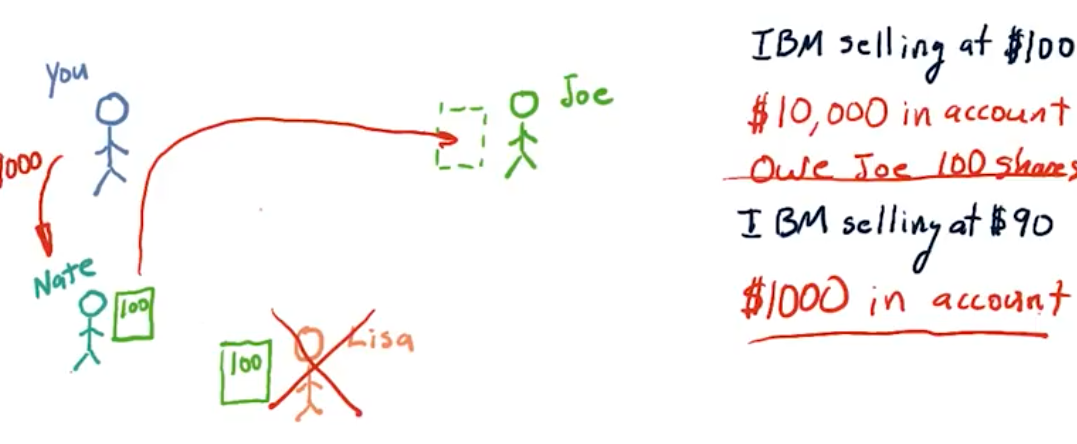 You
Joe
000
Nate
100
100
Lisa
IBM selling at $100
$10,000 in account
Owe Joe 100 shares
IBM selling at $90
$1000 in account